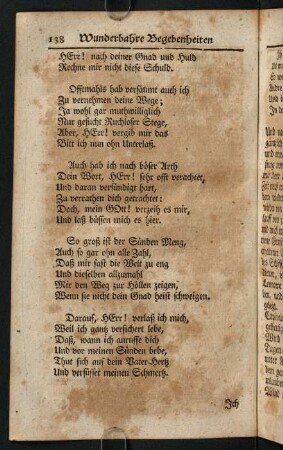 138 Wunderbahre Begebenheiten
HErr! nach deiner Gnad und Huld
Rechne mir nicht diese Schuld.
Offtmahls hab versäumt auch ich
Zu vernehmen deine Wege;
Ja wohl gar muthwilliglich
Nur gesucht Ruchloser Stege,
Aber, HErr! vergib mir das
Bitt ich nun ohn Unterlaß.
Auch hab ich nach böser Arth
Dein Wort, HErr! sehr offt verachtet,
Und daran versündigt hart,
Zu verrathen dich getrachtet:
Doch, mein GOtt! verzeih es mir,
Und laß büssen mich es hier.
So groß ist der Sünden Meng,
Auch so gar ohn alle Zahl,
Daß mir fast die Welt zu eng
Und dieselben allzumahl
Mir den Weg zur Höllen zeigen,
Wenn sie nicht dein Gnad heist schweigen.
Darauf, HErr! verlaß ich mich,
Weil ich gantz versichert lebe,
Daß, wann ich anruffe dich
Und vor meinen Sünden bebe,
Thut sich auf dein Vater-Hertz
Und versüsset meinen Schmertz.
Ich